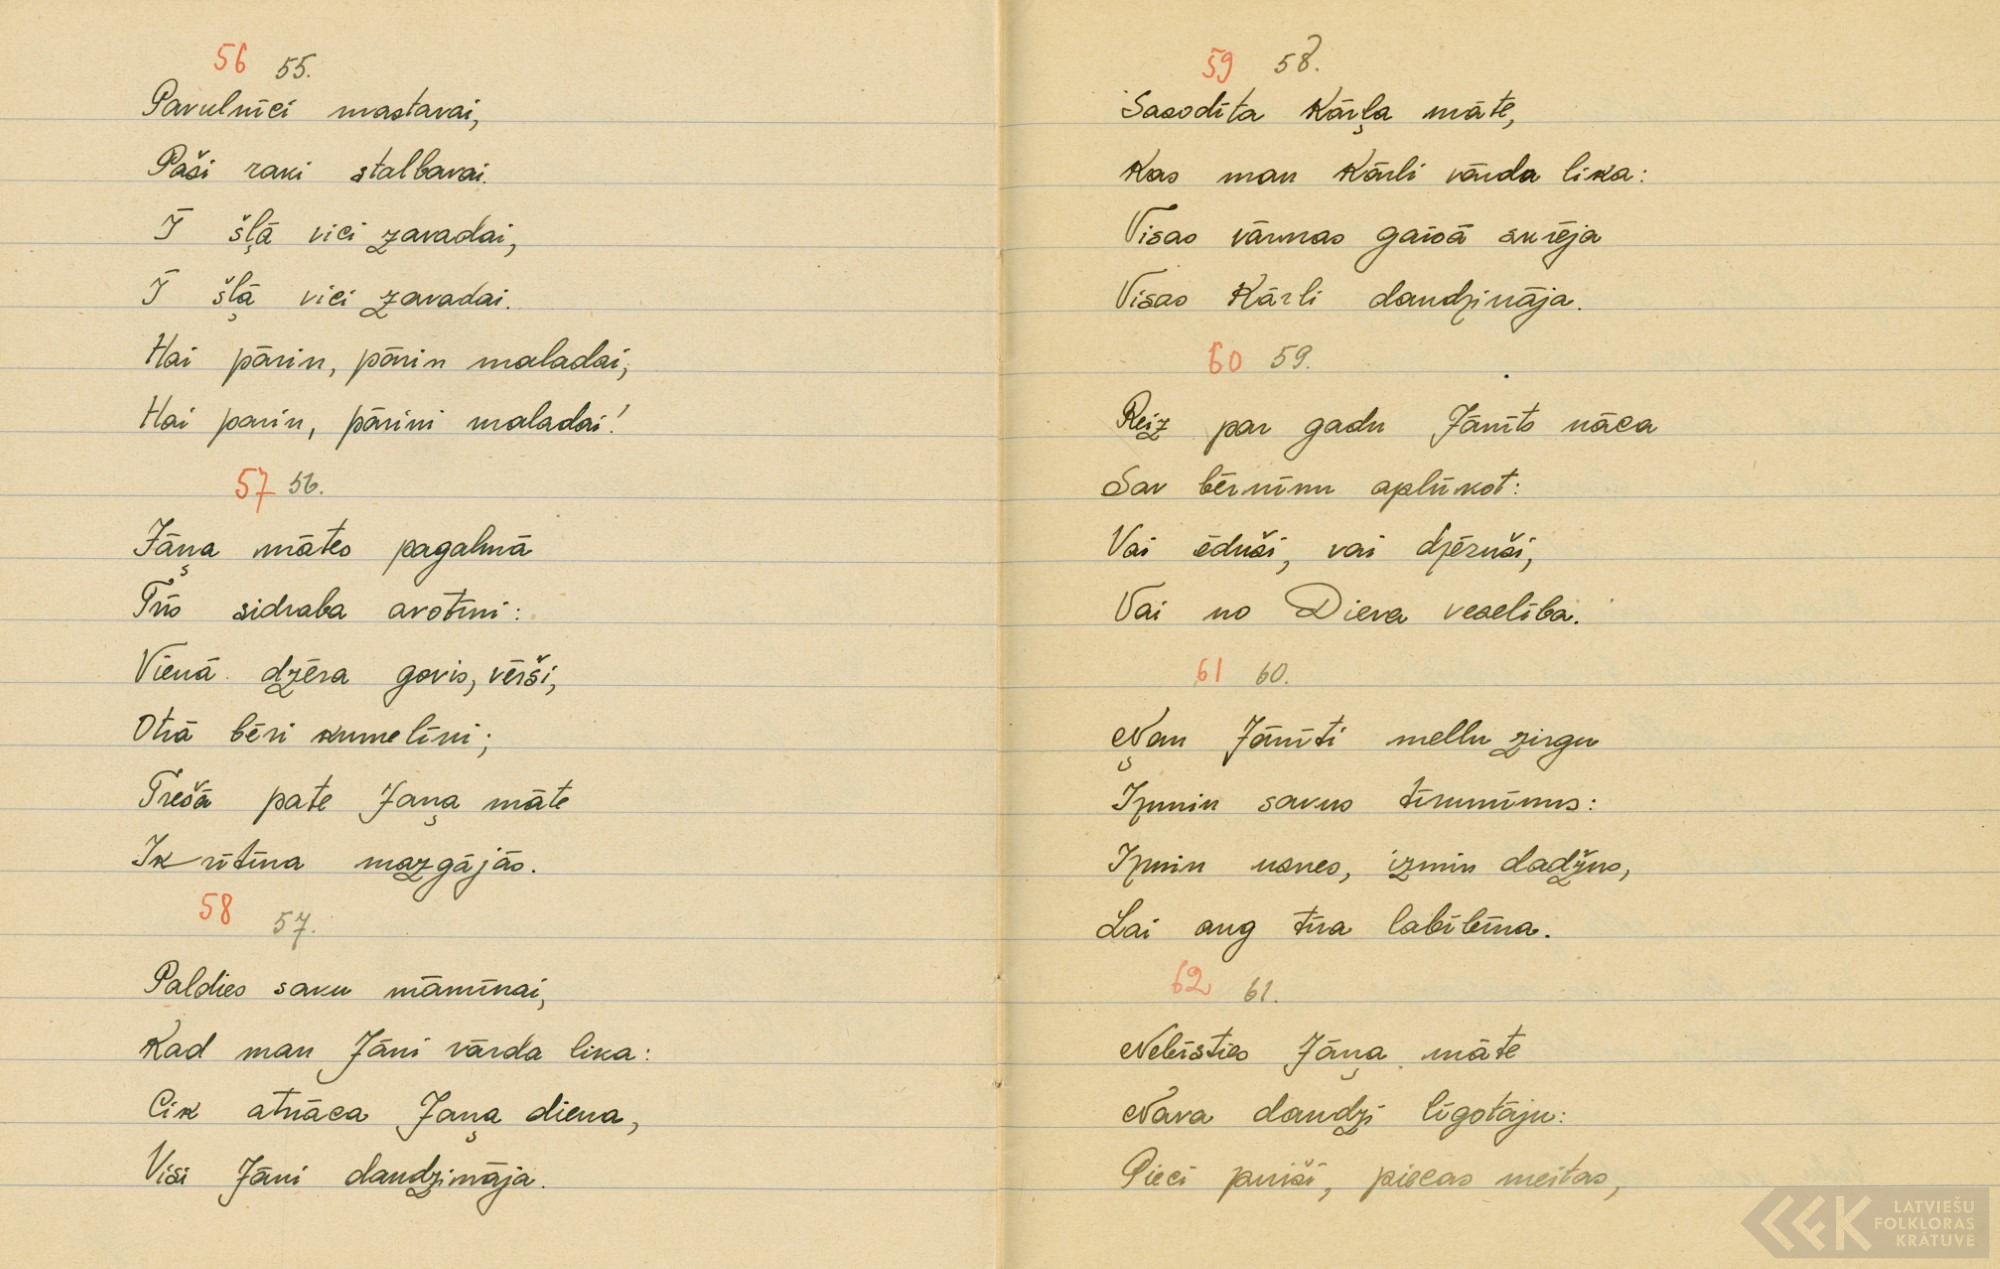 56 55.
Pavulnīci mastavai,
Paši raki stalbavai.
Ī šļā vici zavadai,
Ī šļā vici zavadai.
Hai pārin, pārin maladai,
Hai parin, pārini maladai!
57 56.
Jāņa mātes pagalmā
Trīs sidraba avotiņi:
Vienā dzēra govis, vērši,
Otrā bēri kumelīni;
Trešā pate Jaņa māte
Ik rītīna mazgājās.
58 57.
Paldies saku māmīnai,
Kad man Jāni vārda lika:
Cik atnāca Jaņa diena,
Visi Jāni daudzināja.
59 58.
Sasodīta Kārļa māte,
Kas man Kārli vārda lika:
Visas vārnas gaisā skrēja
Visas Kārli daudzināja.
60 59.
Reiz par gadu Jānīts nāca
Sav bērnīnu aplūkot:
Vai ēduši, vai dzēruši,
Vai no Dieva veselība.
61 60.
Ņau Jānīti mellu zirgu
Izmin savus tīrumīnus:
Izmin usnes, izmin dadžus,
Lai aug tīra labībīna.
62 61.
Nebīsties Jāņa māte
Nava daudzi līgotāju:
Pieci puiši, piecas meitas,
LATVIEŠU
FOLKLORAS
KRĀTUVE